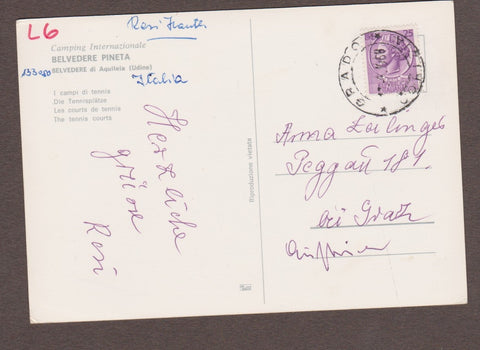 L6
Resi
Camping Internazionale
BELVEDERE PINETA
BELVEDERE di Aquileia (Udine)
Italia
I campi di tennis
Die Tennisplätze
Les courts de tennis
The tennis courts
Herzliche
grüsse
Resi
Riproduzione vietata
25
GRADO
Anna
Peggau 181.
bei Graz